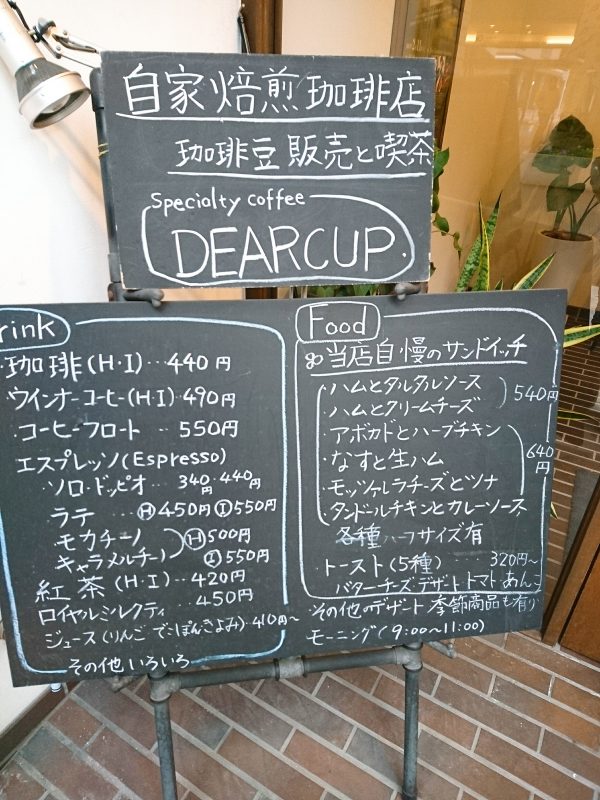 自家焙煎珈琲店
珈琲豆販売と喫茶
Specialty coffee
DEARCUP.
rink
・珈琲(H・I)・・・440円
ウインナーコーヒー(H・I)・490円
・コーヒーフロート・・・550円
エスプレッソ(Espresso)
ソロ・ドッピオ・・・340円 440円
ラテ・・・Ⓗ450円Ⓘ550円
モカチーノ
キャラメルチーノ
Ⓗ500円
Ⓘ550円
紅茶(H・I)・・・420円
ロイヤルミルクティ 450円
ジュース(りんご でこぽん きよみ)・410円~
その他いろいろ
Food
当店自慢のサンドイッチ
・ハムとタルタルソース
・ハムとクリームチーズ
540円
・アボカドとハーブチキン
・なすと生ハム
・モッツァレラチーズとツナ
・タンドールチキンとカレーソース
640円
各種ハーフサイズ有
・トースト(5種)・・・320円~
バターチーズ・デザート トマト あんこ
その他のデザート 季節商品も有り
モーニング(9:00~11:00)